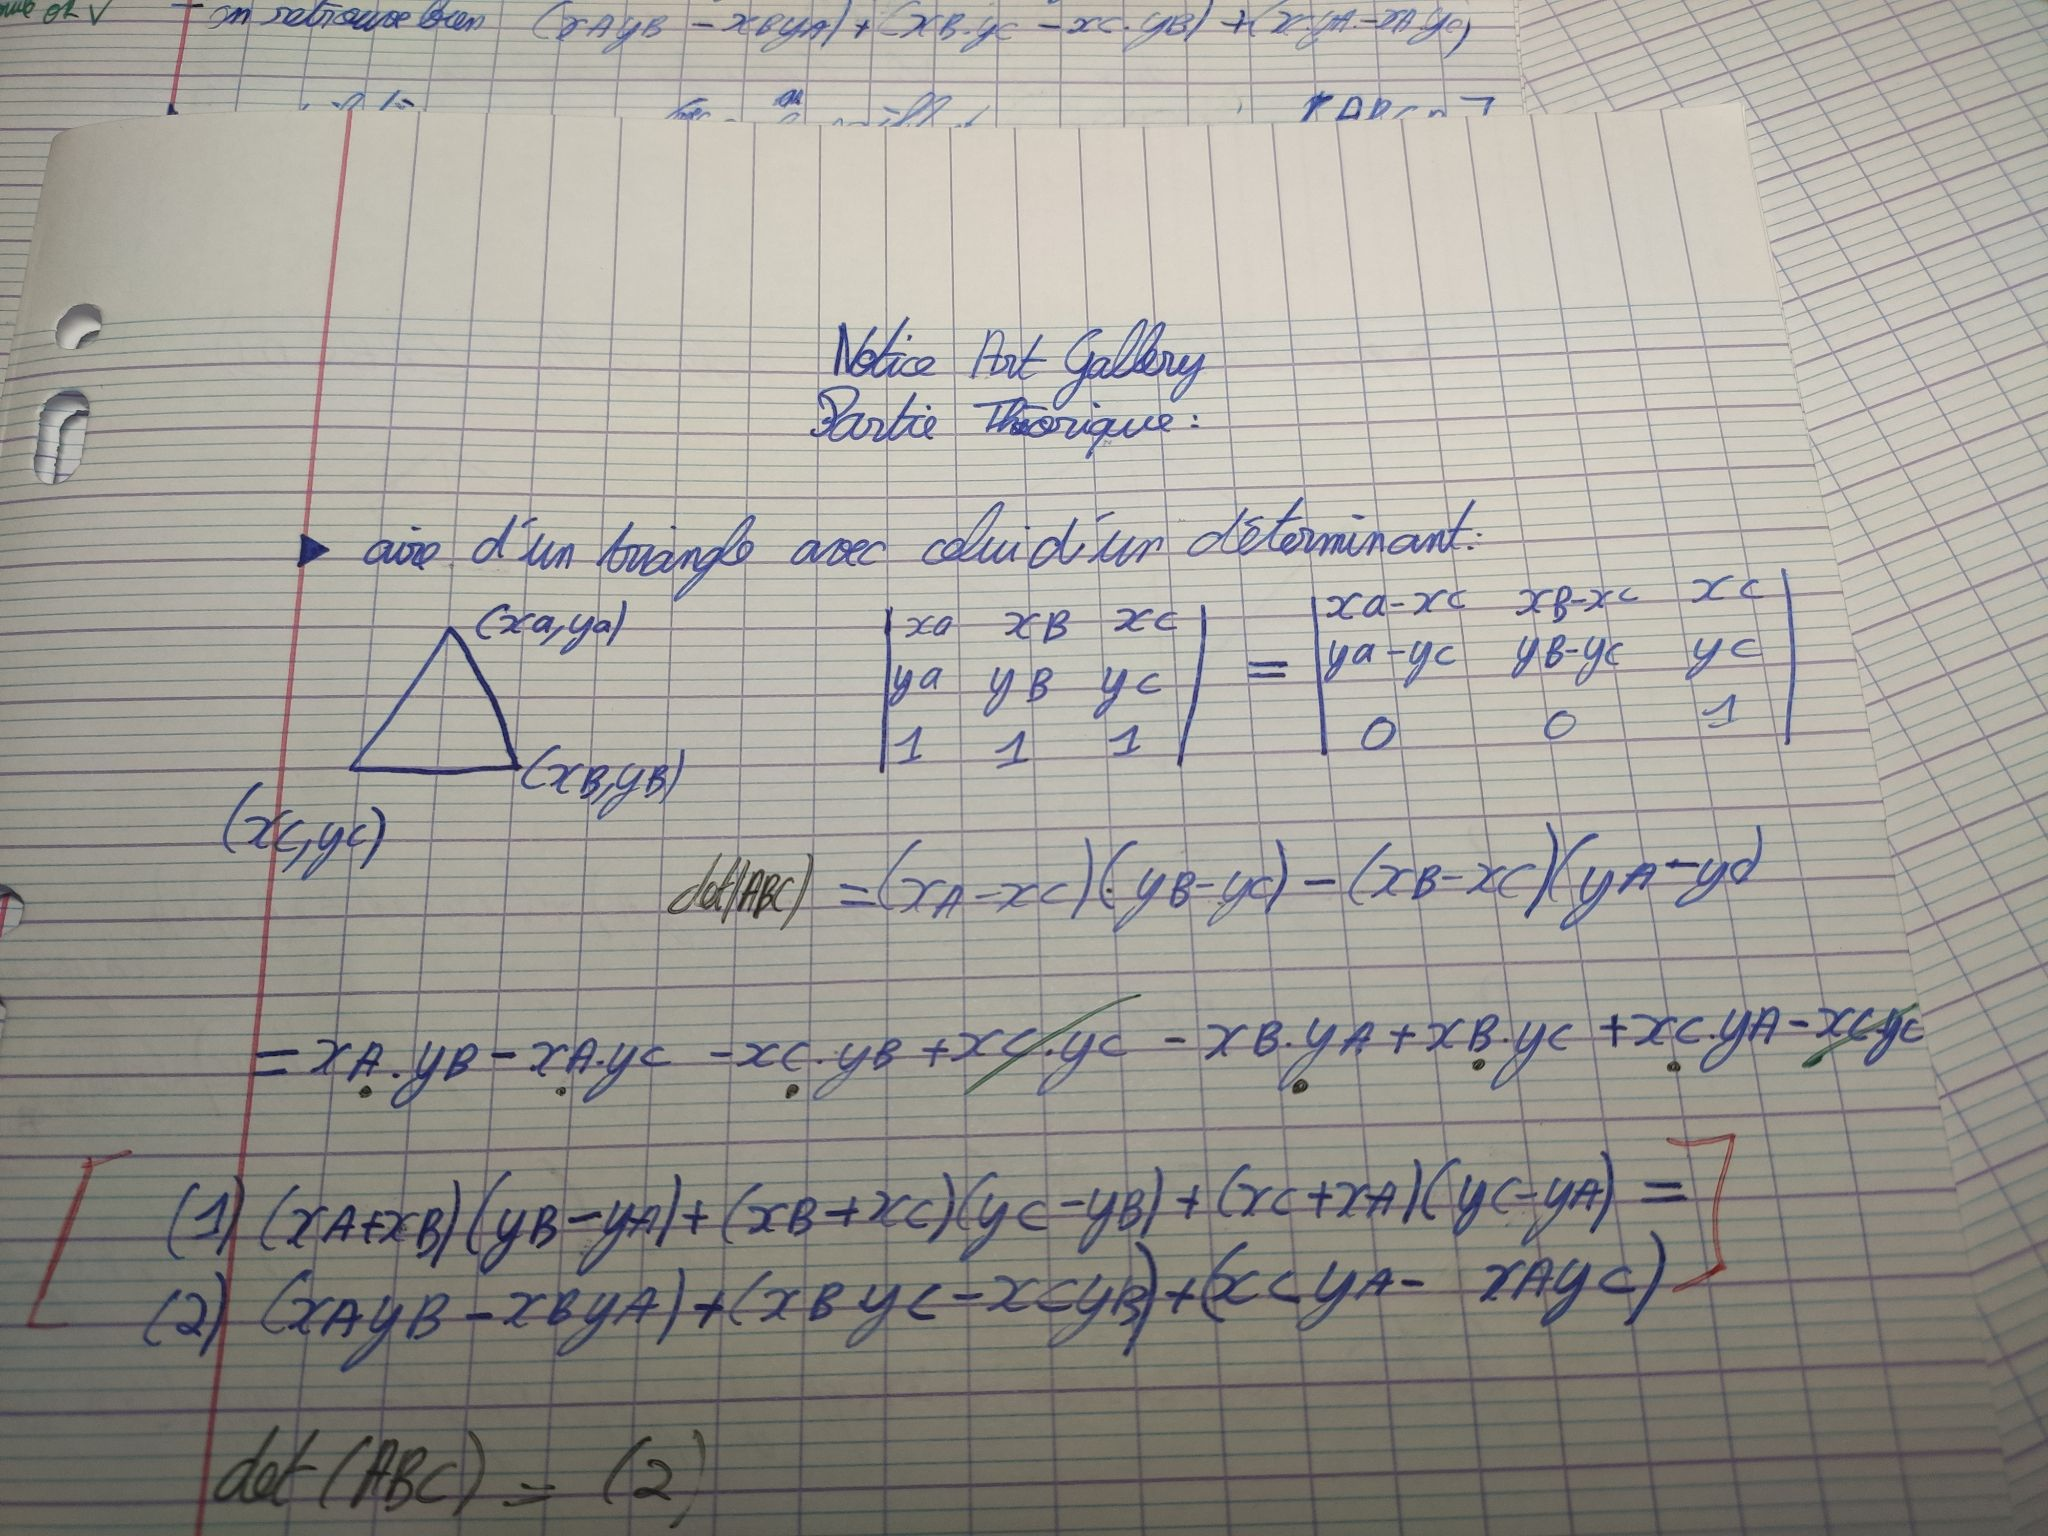 on retrouve bien (xAyB - xByA) + (xB.yC - xC.yB) + (x.yA - xA.yC)
Notice Art Gallery
Partie Théorique :
► aire d'un triangle avec celui d'un déterminant :
(xa, ya)
(xB, yB)
(xC, yC)
| xa xB xC | = | xa-xC xB-xC xC |
| ya yB yC | | ya-yC yB-yC yC |
| 1 1 1 | | 0 0 1 |
det(ABC) = (xA-xC)(yB-yC) - (xB-xC)(yA-yC)
= xA.yB - xA.yC - xC.yB + xC.yC - xB.yA + xB.yC + xC.yA - xC.yC
[ (1) (xA+xB)(yB-yA) + (xB+xC)(yC-yB) + (xC+xA)(yC-yA) = ]
(2) (xAyB - xByA) + (xByC - xCyB) + (xCyA - xAyC)
det (ABC) = (2)